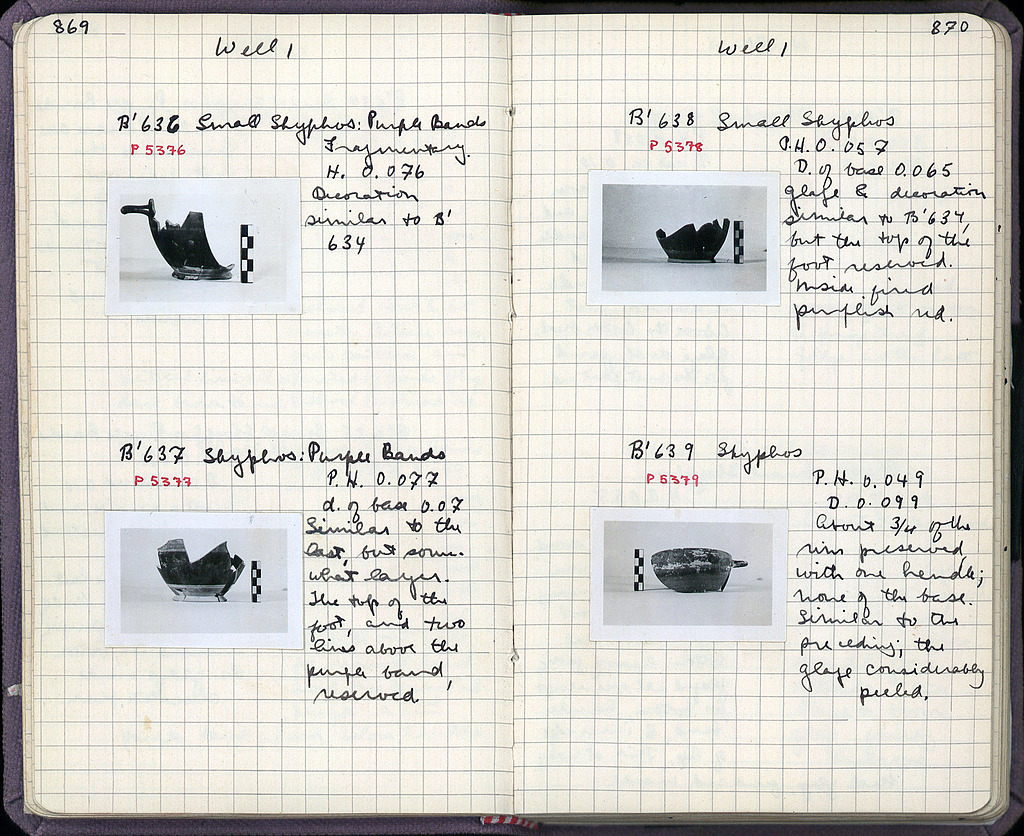 869
Well 1
B' 636 Small Skyphos: Purple Bands
P 5376
Fragmentary.
H. 0.076
Decoration
similar to B'
634
B' 637 Skyphos: Purple Bands
P 5377
P. H. 0.077
d. of base 0.07
Similar to the
last, but some-
what larger.
The top of the
foot, and two
lines above the
purple band,
reserved.
870
Well 1
B' 638 Small Skyphos
P 5378
P.H. 0.057
D. of base 0.065
glaze & decoration
similar to B' 634,
but the top of the
foot reserved.
Inside fired
purplish red.
B' 639 Skyphos
P 5379
P. H. 0.049
D. 0.099
About 3/4 of the
rim preserved,
with one handle;
none of the base.
Similar to the
preceding; the
glaze considerably
peeled.